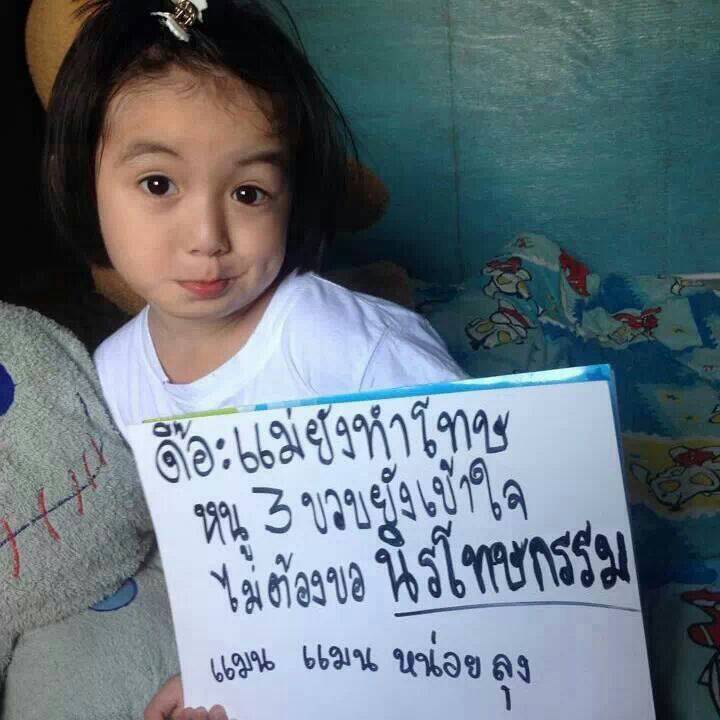 ดื้อ:แม่ยังทำโทษ
หนู 3 ขวบยังเข้าใจ
ไม่ต้องขอ นิรโทษกรรม
แมน แมน หน่อย ลุง